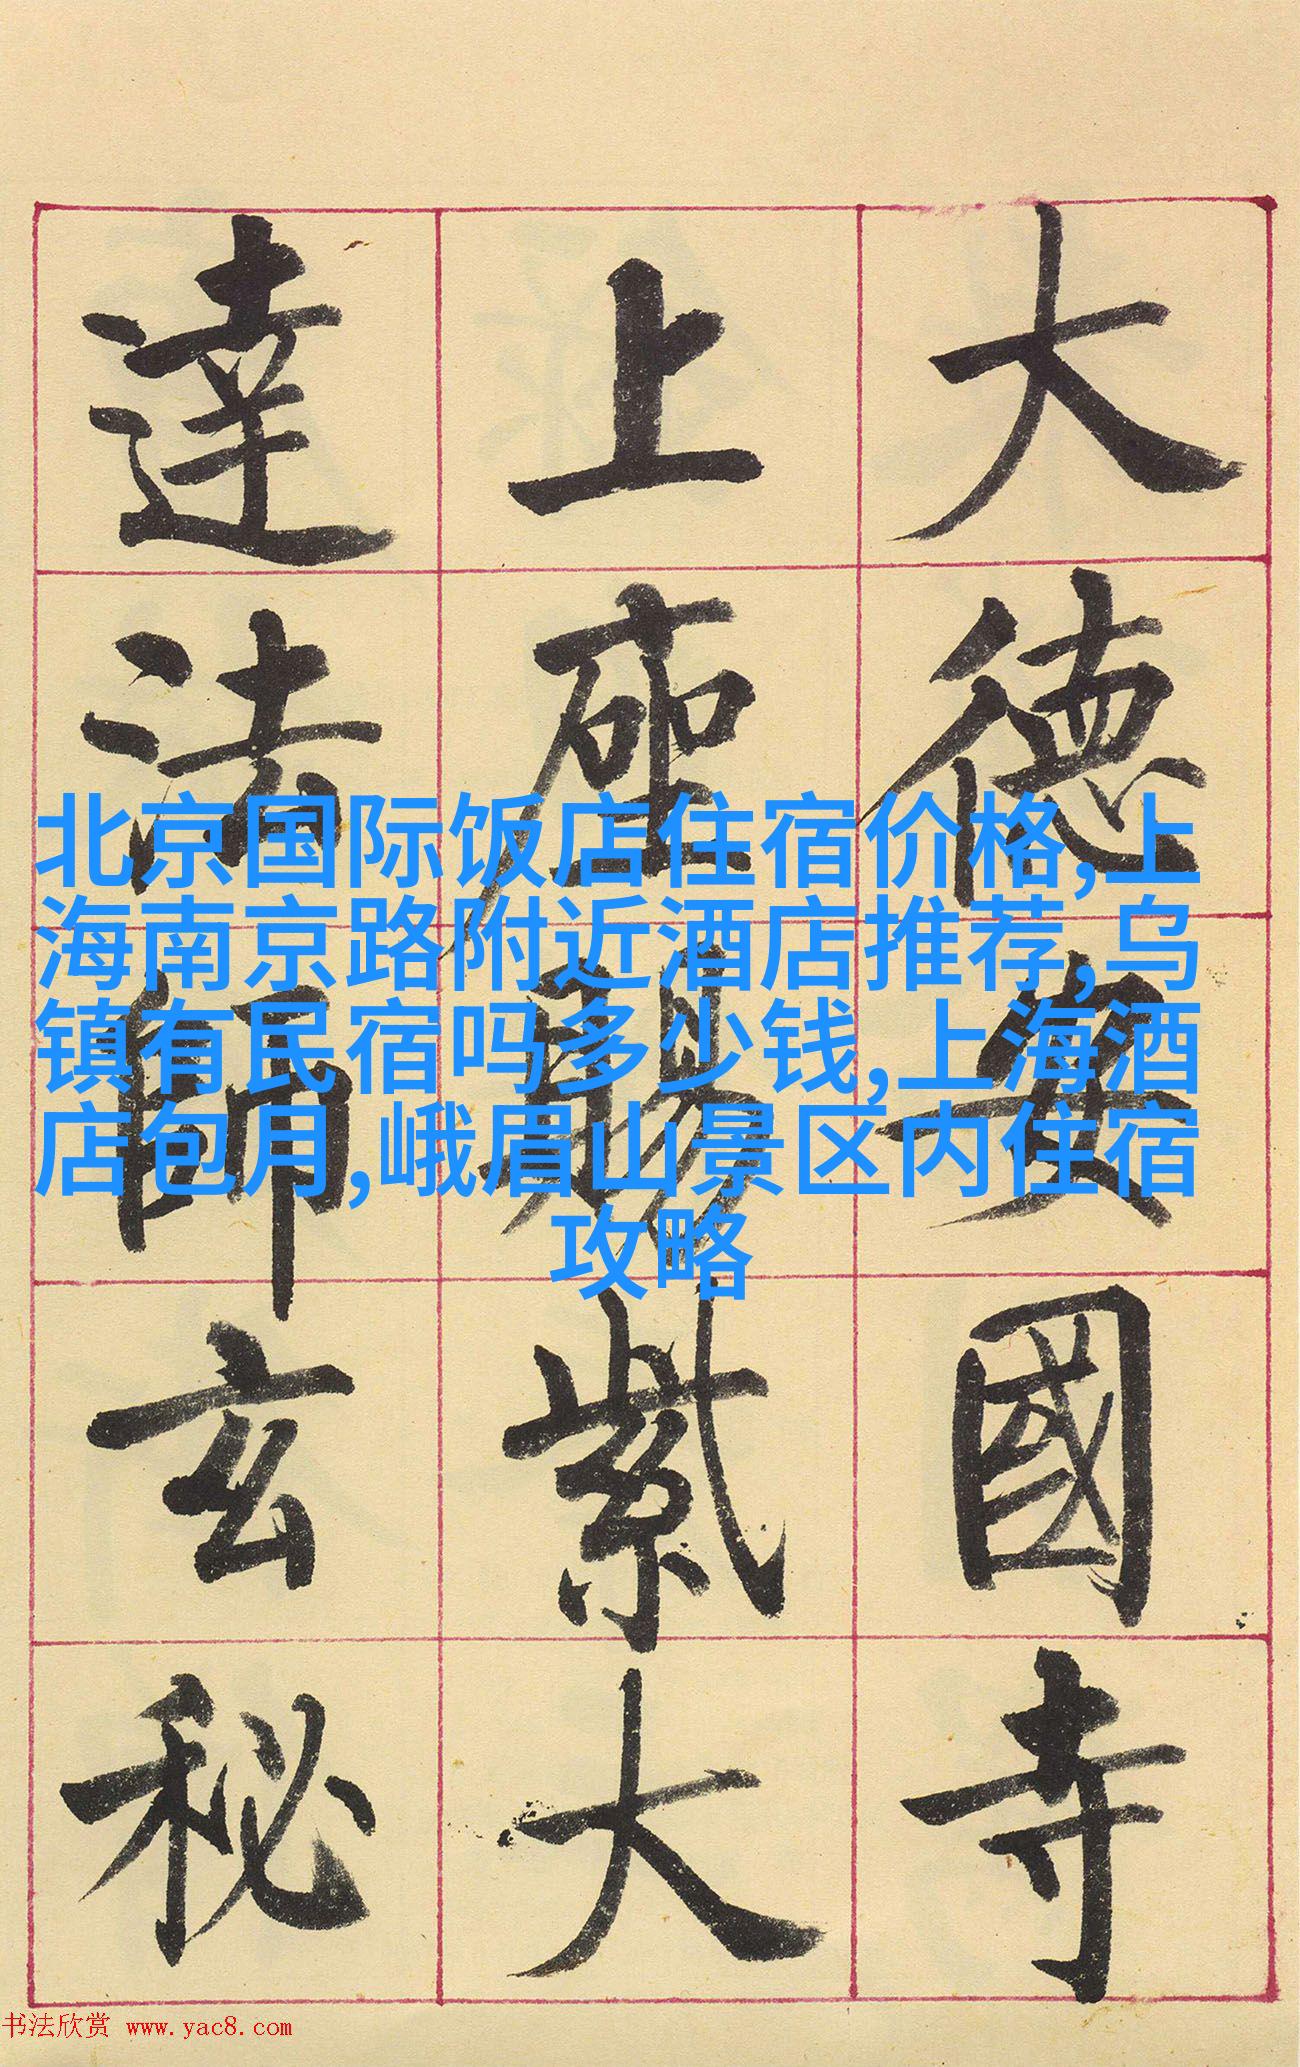 大德安國寺
上座賜紫大
達法師玄秘
北京国际饭店住宿价格,上
海南京路附近酒店推荐,乌
镇有民宿吗多少钱,上海酒
店包月,峨眉山景区内住宿
攻略
书法欣赏 www.yac8.com